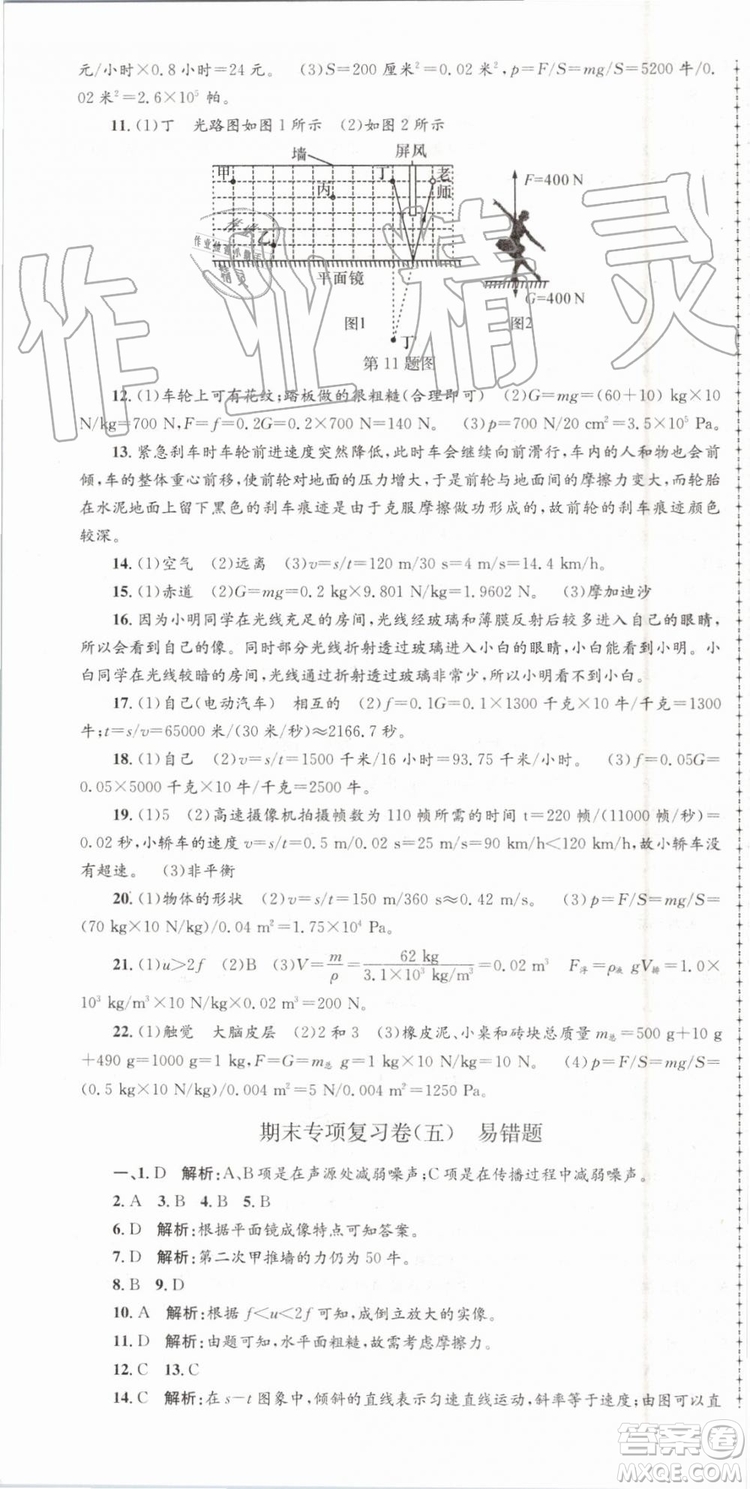 元/小时×0.8小时=24元。 (3)S=200厘米²=0.02米²,p=F/S=mg/S=5200牛/0.
02米²=2.6×10⁵帕。
11. (1)丁 光路图如图1所示 (2)如图2所示
墙
屏风
甲
丁
老师
丙
F=400 N
平面镜
G=400 N
图1
图2
丁
第11题图
12. (1)车轮上可有花纹;踏板做的很粗糙(合理即可) (2)G=mg=(60+10) kg×10
N/kg=700 N,F=f=0.2G=0.2×700 N。 (3)p=700 N/20 cm²=3.5×10⁵ Pa。
13. 紧急刹车时车轮前进速度突然降低,车会继续向前滑行,车内的人会向前
倾,车的整体重心前移,使前轮对地面的压力增大,于是前轮与地面间的摩擦力变大,而轮胎
在水泥地面上留下黑色的刹车痕迹是由于克服摩擦做功形成的,因此,前轮的刹车痕迹颜色
较深。
14. (1)空气 (2)远离 (3)v=s/t=120 m/30 s=4 m/s=14.4 km/h。
15. (1)赤道 (2)G=mg=0.2 kg×9.801 N/kg=1.9602 N。 (3)摩加迪沙
16. 因为小明同学在光线充足的房间,光线经玻璃和薄膜反射后部分进入自己的眼睛,
所以会看到自己的像。同时部分光线折射透过玻璃进入小白的眼睛,小白能看到小明。小
白同学在光线较暗的房间,光线通过玻璃非常少,所以小明看不到小白。
17. (1)自己(电动汽车) 相互的 (2)f=0.1G=0.1×1300千克×10牛/千克=1300
牛;t=s/v=65000米/(30米/秒)≈2166.7秒。
18. (1)自己 (2)v=s/t=1500千米/16小时=93.75千米/小时。 (3)f=0.05G=
0.05×5000千克×10牛/千克=2500牛。
19. (1)5 (2)高速摄像机拍摄帧数为110帧所需的时间t=220帧/(11000帧/秒)=
0.02秒,小轿车的速度v=s/t=0.5 m/0.02 s=25 m/s=90 km/h<120 km/h,故小轿车没
有超速。 (3)非平衡
20. (1)物体的形状 (2)v=s/t=150 m/360 s≈0.42 m/s。 (3)p=F/S=mg/S=
(70 kg×10 N/kg)/0.04 m²=1.75×10⁴ Pa。
21. (1)u>2f (2)B (3)V=m/ρ=62 kg/3.1×10³ kg/m³=0.02 m³ F浮=ρ液gV排=1.0×
10³ kg/m³×10 N/kg×0.02 m³=200 N。
22. (1)触觉 大脑皮层 (2)2和3 (3)橡皮泥、小桌和砖块总质量m总=500 g+10 g
+490 g=1000 g=1 kg,F=G=m总g=1 kg×10 N/kg=10 N。 (4)p=F/S=mg/S=
(0.5 kg×10 N/kg)/0.004 m²=5 N/0.004 m²=1250 Pa。
期末专项复习卷(五) 易错题
一、1. D 解析:A、B项是在声源处减弱噪声;C项是在传播过程中减弱噪声。
2. A 3. B 4. B 5. B
6. D 解析:根据平面镜成像特点可知答案。
7. D 解析:第二次甲推墙的力仍为50牛。
8. B 9. D
10. A 解析:根据f<u<2f可知,成倒立放大的实像。
11. D 解析:由题可知,水平面粗糙,故需考虑摩擦力。
12. C 13. C
14. C 解析:在s-t图象中,倾斜的直线表示匀速直线运动,斜率等于速度;由图可以直
作业精灵
答案圈
MXQE.COM